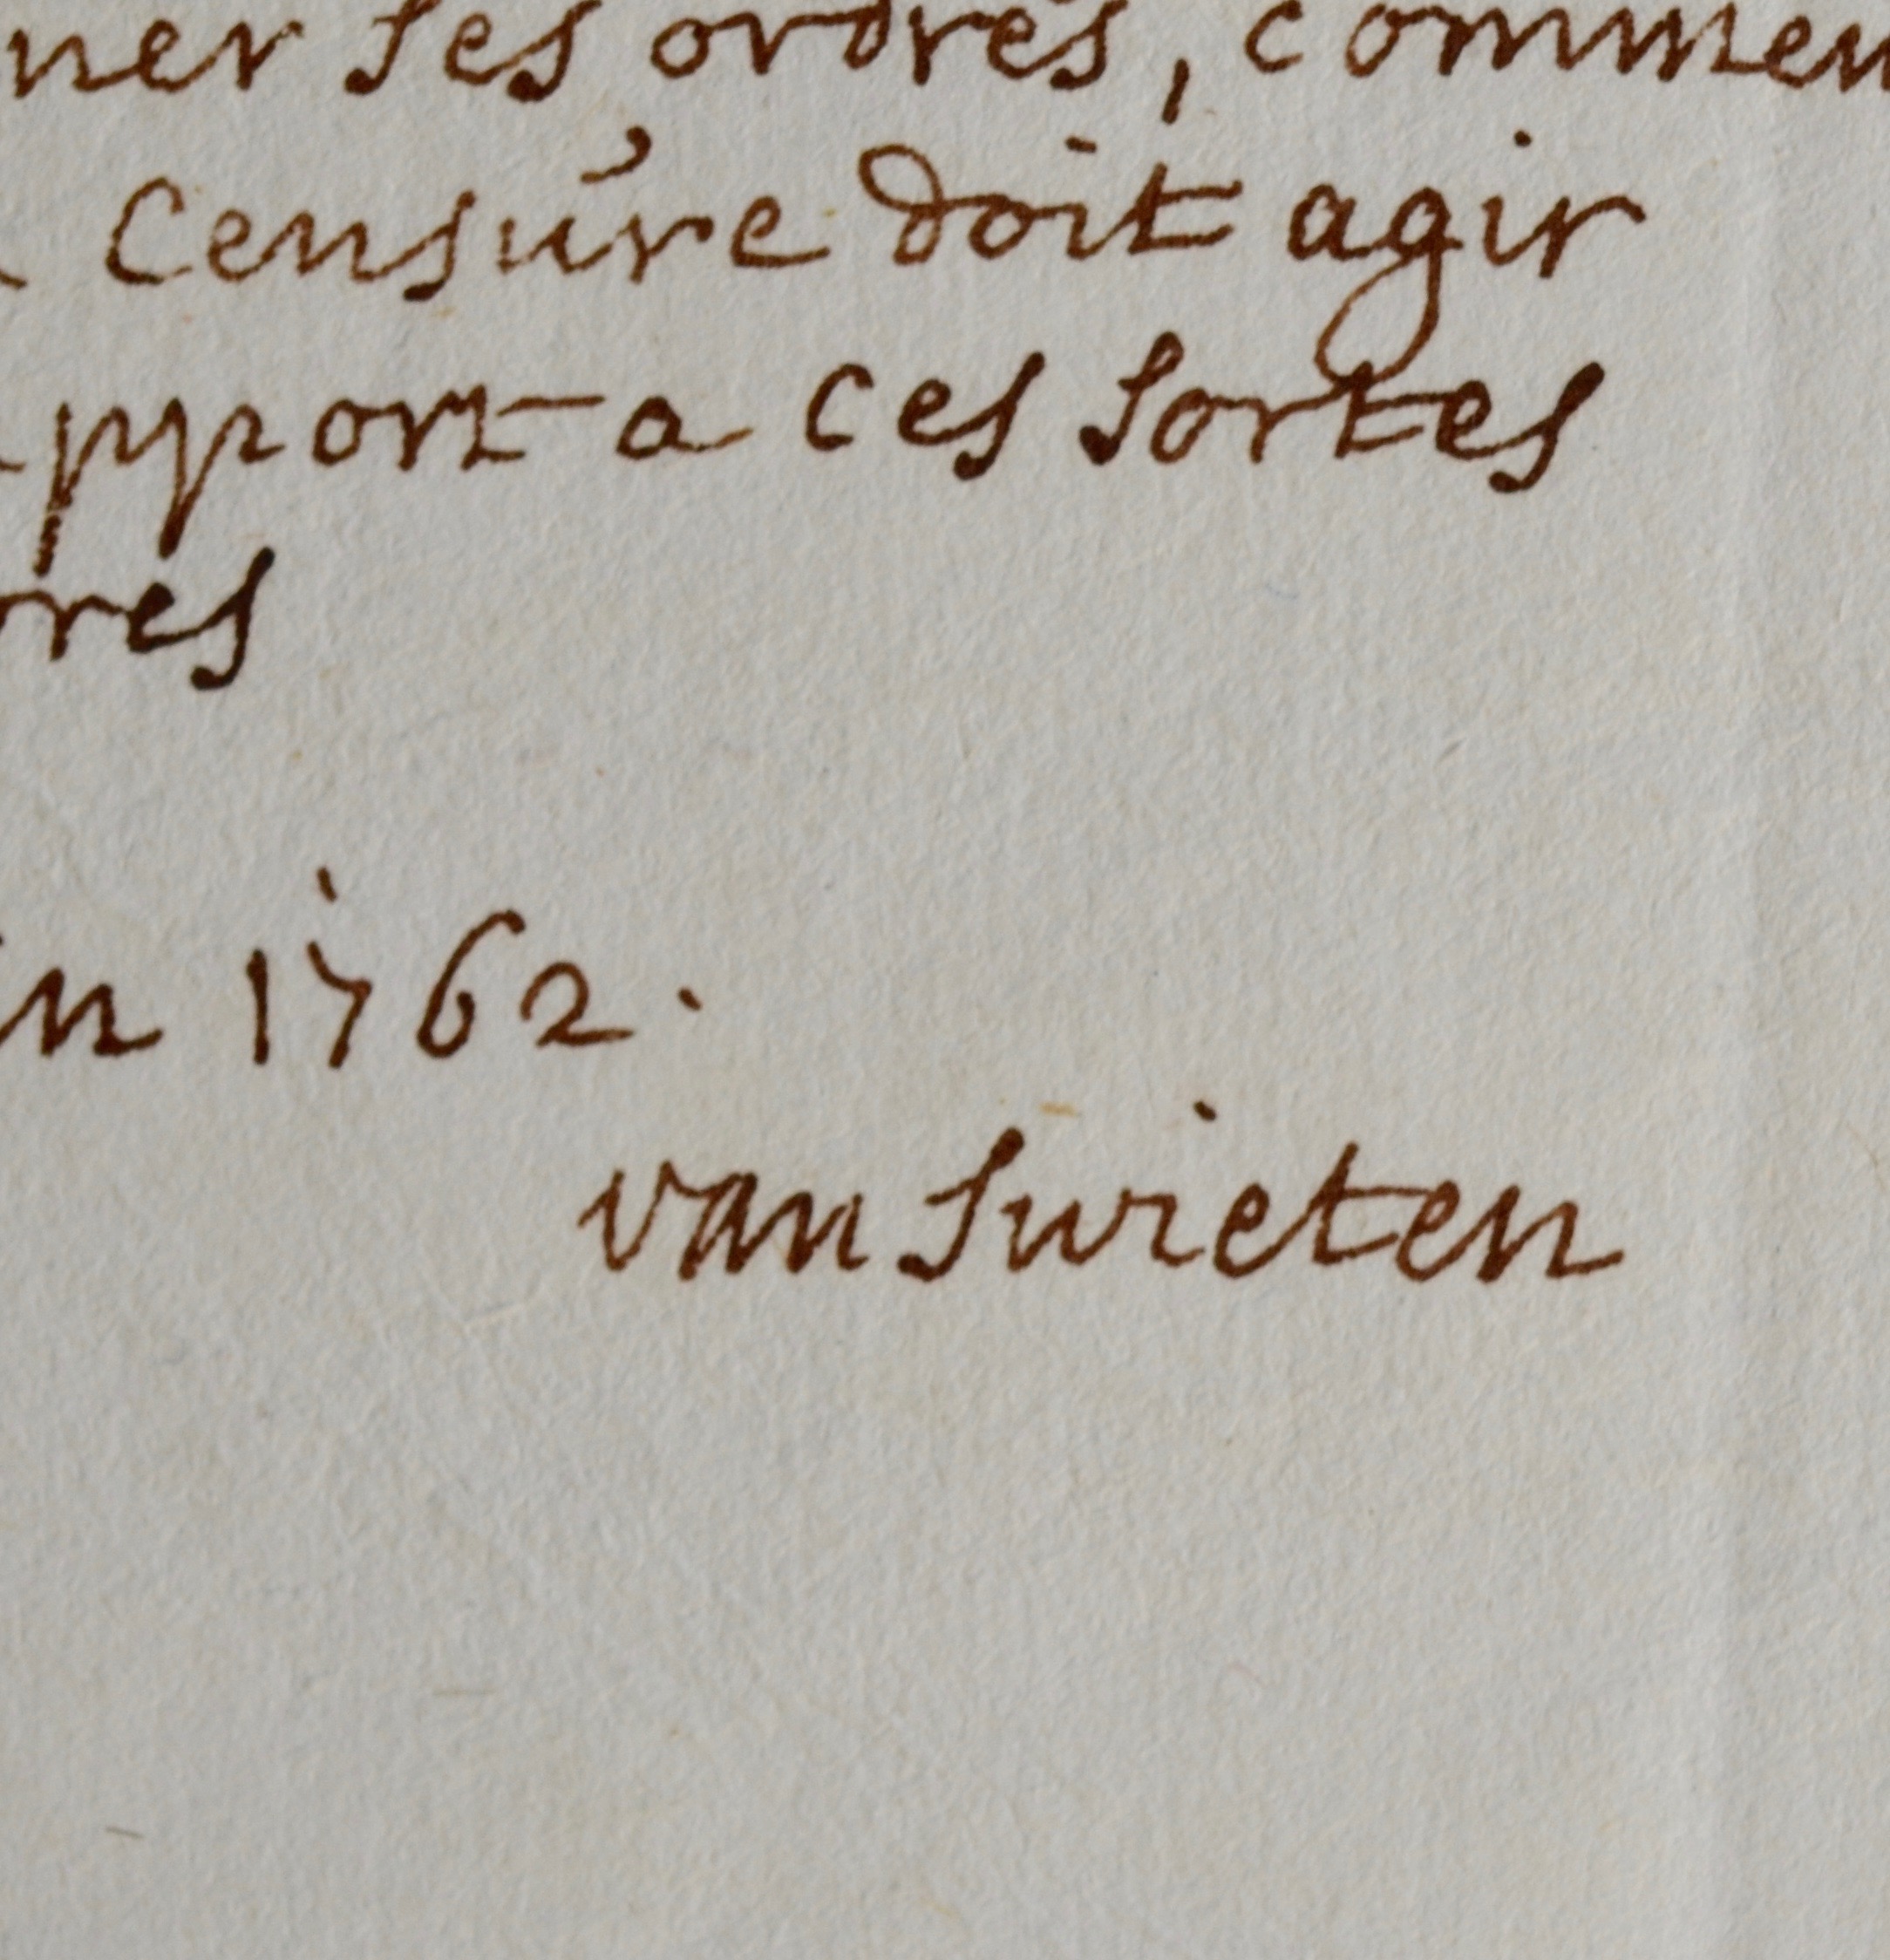 ner ses ordres, commen
Censure doit agir
pport a ces sortes
res
in 1762.
van Swieten